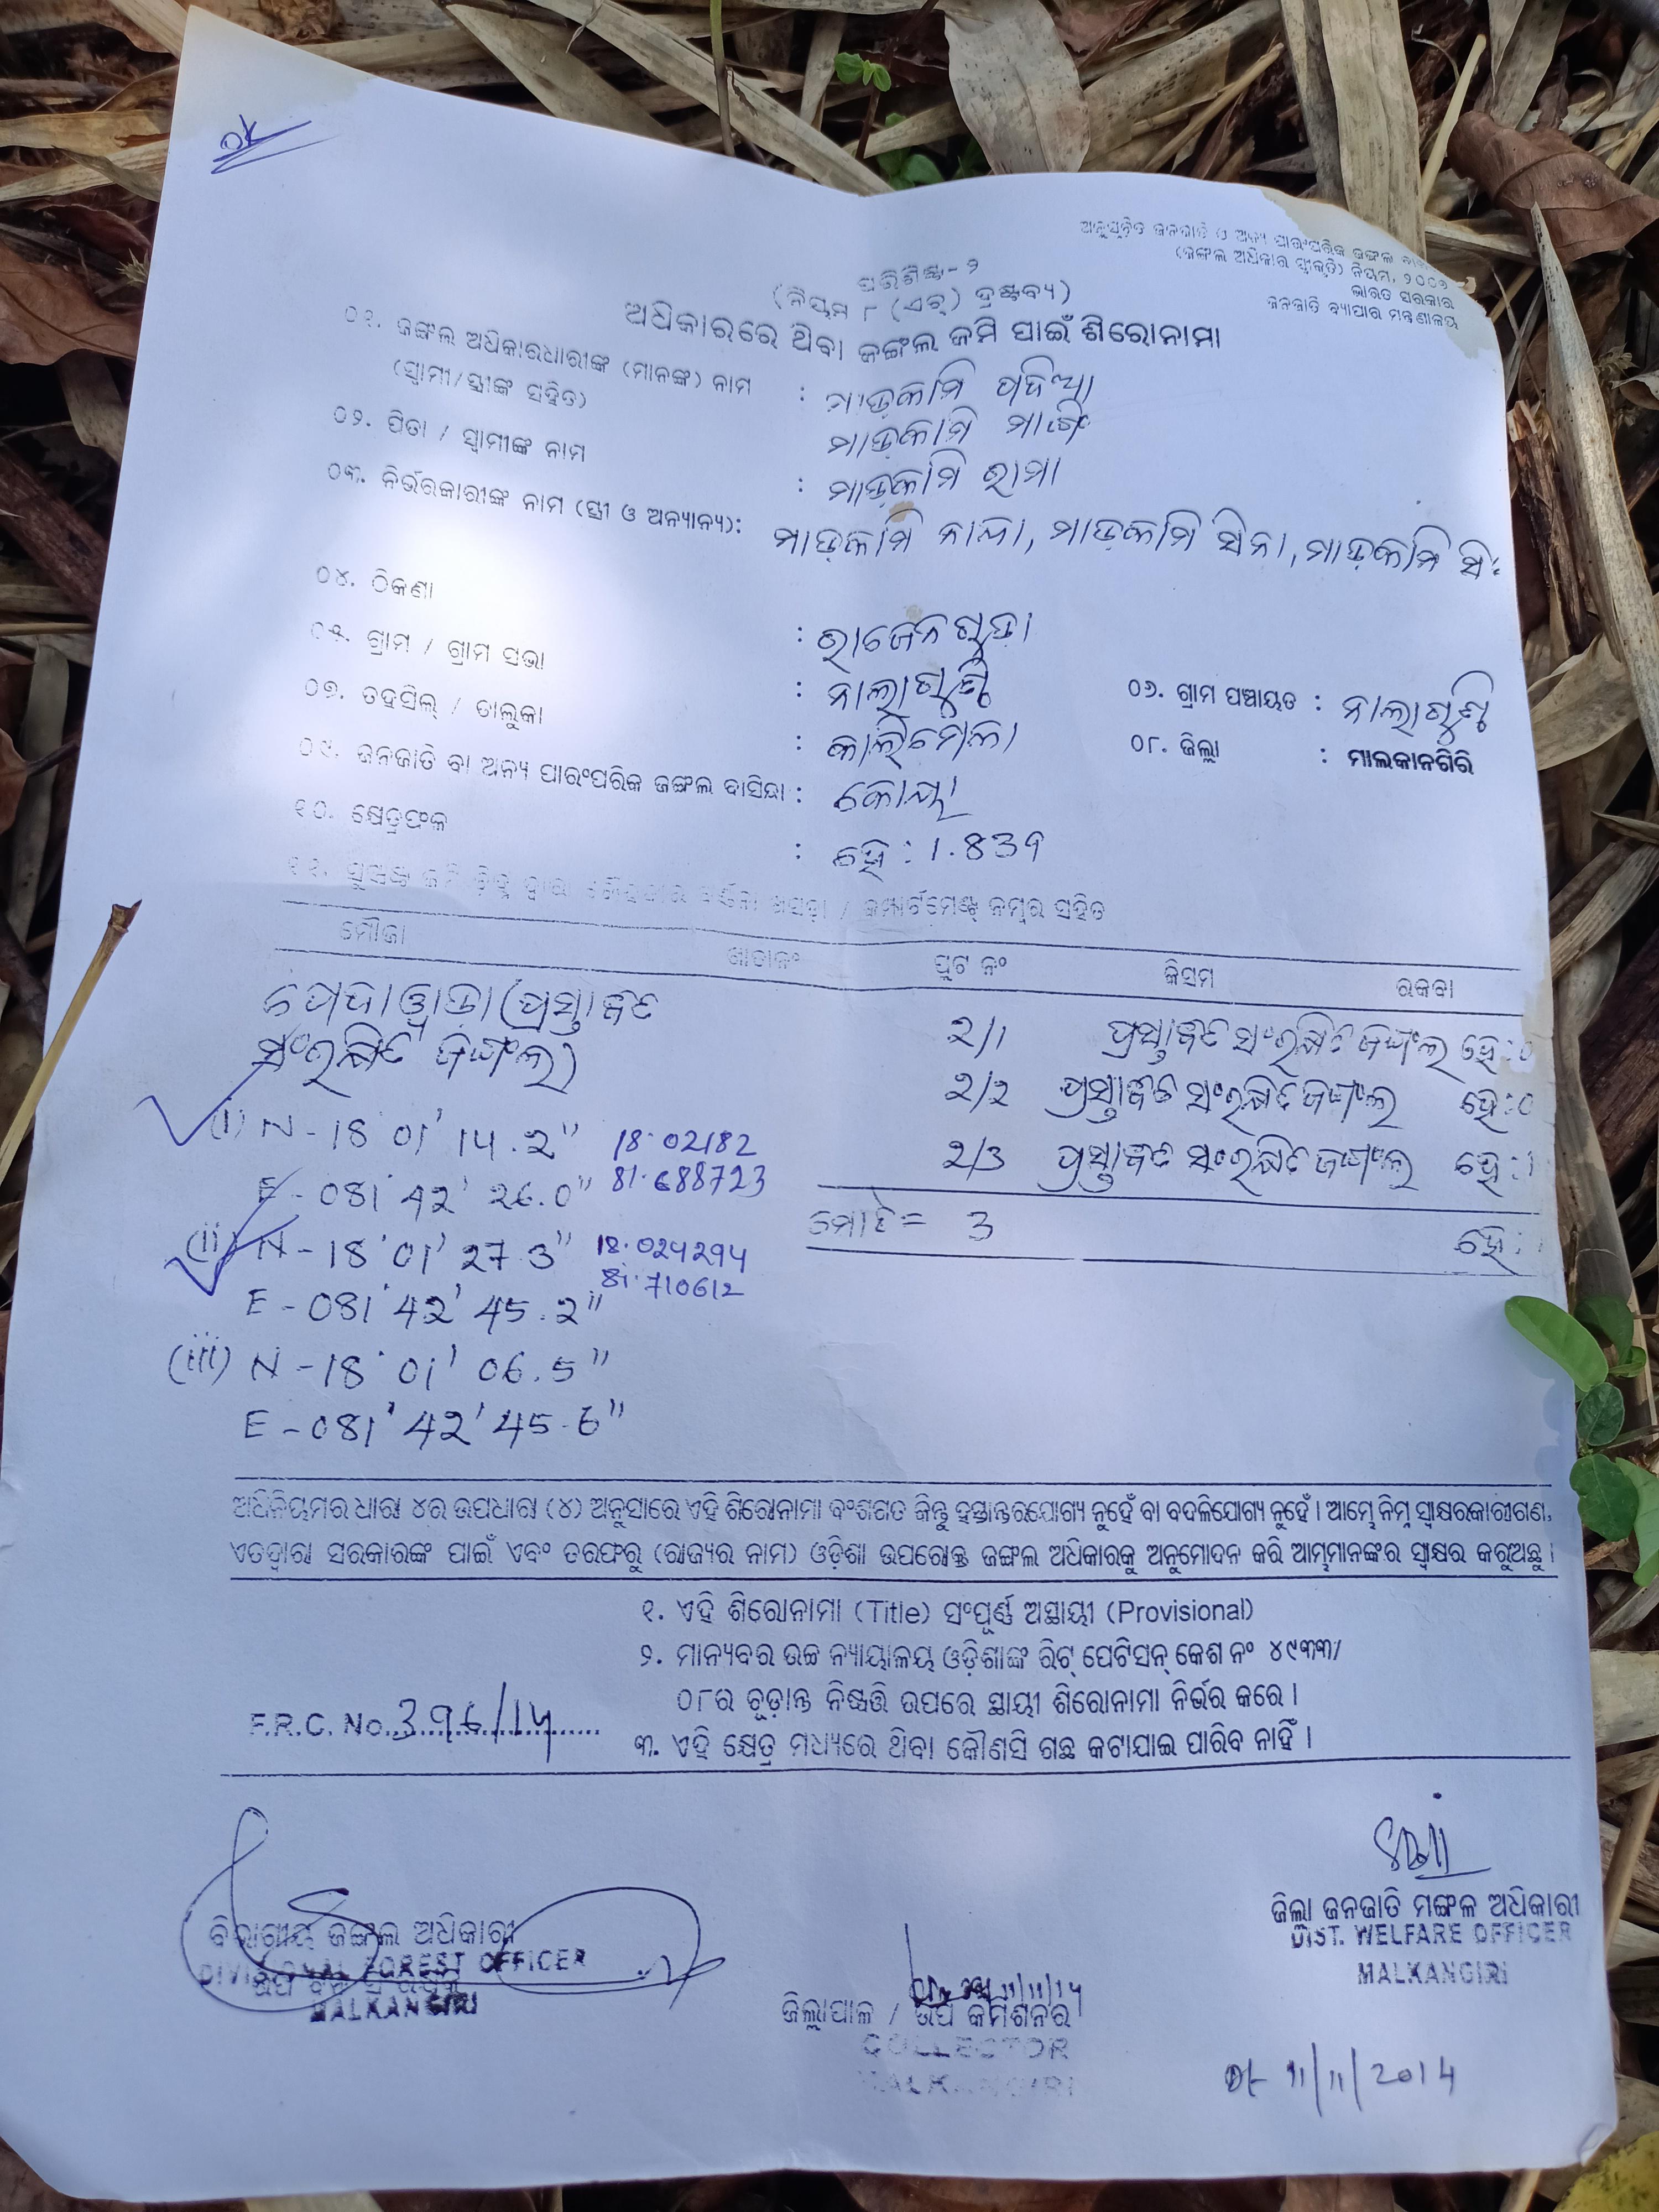 ok
ଅନୁସୂଚିତ ଜନଜାତି ଓ ଅନ୍ୟ ପାରଂପରିକ ଜଙ୍ଗଲ
(ଜଙ୍ଗଲ ଅଧିକାର ସ୍ୱୀକୃତି) ନିୟମ, ୨୦୦୭
ଭାରତ ସରକାର
ଜନଜାତି ବ୍ୟାପାର ମନ୍ତ୍ରଣାଳୟ
ପରିଶିଷ୍ଟ-୨
(ନିୟମ ୮ (ଏଚ୍) ଦ୍ରଷ୍ଟବ୍ୟ)
ଅଧିକାରରେ ଥିବା ଜଙ୍ଗଲ ଜମି ପାଇଁ ଶିରୋନାମା
୦୧. ଜଙ୍ଗଲ ଅଧିକାରଧାରୀଙ୍କ (ମାନଙ୍କ) ନାମ : ମାଡ଼କାମି ପଦିଆ
(ସ୍ୱାମୀ/ସ୍ତ୍ରୀଙ୍କ ସହିତ) ମାଡ଼କାମି
୦୨. ପିତା / ସ୍ୱାମୀଙ୍କ ନାମ : ମାଡ଼କାମି ରାମା
୦୩. ନିର୍ଭରକାରୀଙ୍କ ନାମ (ସ୍ତ୍ରୀ ଓ ଅନ୍ୟାନ୍ୟ): ମାଡ଼କାମି ନନ୍ଦା, ମାଡ଼କାମି, ମାଡ଼କାମି
୦୪. ଠିକଣା : ରାଜେନଗୁଡା
୦୫. ଗ୍ରାମ / ଗ୍ରାମ ସଭା : ନାଲାଗୁଣ୍ଠି ୦୬. ଗ୍ରାମ ପଞ୍ଚାୟତ : ନାଲାଗୁଣ୍ଠି
୦୭. ତହସିଲ୍ / ତାଲୁକା : କାଲିମେଳା ୦୮. ଜିଲ୍ଲା : ମାଲକାନଗିରି
୦୯. ଜନଜାତି ବା ଅନ୍ୟ ପାରଂପରିକ ଜଙ୍ଗଲ ବାସିନ୍ଦା : କୋୟା
୧୦. କ୍ଷେତ୍ରଫଳ : ହେ: 1.83୨
୧୧. ସୁସ୍ପଷ୍ଟ ଜମି ଚିହ୍ନ ଦ୍ୱାରା ଚୌହଦ୍ଦୀର ବର୍ଣ୍ଣନା ଖସଡ଼ା / କମ୍ପାର୍ଟମେଣ୍ଟ ନମ୍ବର ସହିତ
ମୌଜା ଖାତା ନଂ ପ୍ଲଟ ନଂ କିସମ ରକବା
ପେଦାୱାଡା (ପ୍ରସ୍ତାବିତ
ସଂରକ୍ଷିତ ଜଙ୍ଗଲ)
2/1 ପ୍ରସ୍ତାବିତ ସଂରକ୍ଷିତ ଜଙ୍ଗଲ ହେ:0
2/2 ପ୍ରସ୍ତାବିତ ସଂରକ୍ଷିତ ଜଙ୍ଗଲ ହେ:0
2/3 ପ୍ରସ୍ତାବିତ ସଂରକ୍ଷିତ ଜଙ୍ଗଲ ହେ:1
ମୋଟ = 3 ହେ:
(i) N - 18° 01' 14.2" 18.02182
E - 081° 42' 26.0" 81.688723
(ii) N - 18° 01' 27.3" 18.024294
E - 081° 42' 45.2" 81.710612
(iii) N - 18° 01' 06.5"
E - 081° 42' 45.6"
ଅଧିନିୟମର ଧାରା ୪ର ଉପଧାରା (୪) ଅନୁସାରେ ଏହି ଶିରୋନାମା ବଂଶଗତ କିନ୍ତୁ ହସ୍ତାନ୍ତରଯୋଗ୍ୟ ନୁହେଁ ବା ବଦଳିଯୋଗ୍ୟ ନୁହେଁ । ଆମ୍ଭେ ନିମ୍ନ ସ୍ୱାକ୍ଷରକାରୀଗଣ,
ଏତଦ୍ୱାରା ସରକାରଙ୍କ ପାଇଁ ଏବଂ ତରଫରୁ (ରାଜ୍ୟର ନାମ) ଓଡ଼ିଶା ଉପରୋକ୍ତ ଜଙ୍ଗଲ ଅଧିକାରକୁ ଅନୁମୋଦନ କରି ଆମ୍ଭମାନଙ୍କର ସ୍ୱାକ୍ଷର କରୁଅଛୁ ।
୧. ଏହି ଶିରୋନାମା (Title) ସଂପୂର୍ଣ୍ଣ ଅସ୍ଥାୟୀ (Provisional)
୨. ମାନ୍ୟବର ଉଚ୍ଚ ନ୍ୟାୟାଳୟ ଓଡ଼ିଶାଙ୍କ ରିଟ୍ ପେଟିସନ୍ କେଶ ନଂ ୪୯୩୩/
୦୮ର ଚୂଡ଼ାନ୍ତ ନିଷ୍ପତ୍ତି ଉପରେ ସ୍ଥାୟୀ ଶିରୋନାମା ନିର୍ଭର କରେ ।
F.R.C. No. 396/14
୩. ଏହି କ୍ଷେତ୍ର ମଧ୍ୟରେ ଥିବା କୌଣସି ଗଛ କଟାଯାଇ ପାରିବ ନାହିଁ ।
ବିଭାଗୀୟ ଜଙ୍ଗଲ ଅଧିକାରୀ
DIVISIONAL FOREST OFFICER
MALKANGIRI
11/11/14
ଜିଲ୍ଲାପାଳ / ଉପ କମିଶନର
COLLECTOR
MALKANGIRI
ଜିଲ୍ଲା ଜନଜାତି ମଙ୍ଗଳ ଅଧିକାରୀ
DIST. WELFARE OFFICER
MALKANGIRI
Dt 11/11/2014